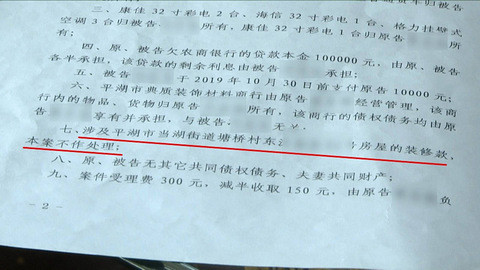 三、康佳32寸彩电2台、海信32寸彩电1台、格力挂壁式
空调3台归被告 所有，康佳32寸彩电1台归原告 所
有；
四、原、被告欠农商银行的贷款本金100000元，由原、被告
各半承担，该贷款的剩余利息由被告 承担；
五、被告 于2019年10月30日前支付原告10000元；
六、平湖市典质装饰材料商行由原告 经营管理，该商
行内的物品、货物归原告 所有，该商行的债权债务均由原
告 享有并承担，与被告 无
七、涉及平湖市当湖街道塘桥村东 号房屋的装修款，
本案不作处理；
八、原、被告无其它共同债权债务、夫妻共同财产；
九、案件受理费300元，减半收取150元，由原告 负
- 2 -